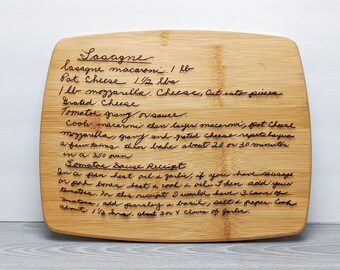 Lasagne
Lasagne macaroni 1 lb
Pot Cheese 1 1/2 lbs
1 lb mozzarella Cheese, Cut into pieces
Grated Cheese
Tomatoe gravy or sauce
Cook macaroni then layer macaroni, Pot Cheese
mozzarella, gravy and grated cheese repeat layers
a few times. then bake about 20 or 30 minutes
in a 350 oven
Tomatoe Sauce Receipt
In a pan heat oil & garlic, if you have sausage
or pork bones, heat & cook oil. then add your
tomatoes. For this receipt I would have 3 cans of
tomatoes, add parsley & basil, salt & pepper. Cook
about 1 1/2 hrs. about 3 or 4 cloves of garlic.